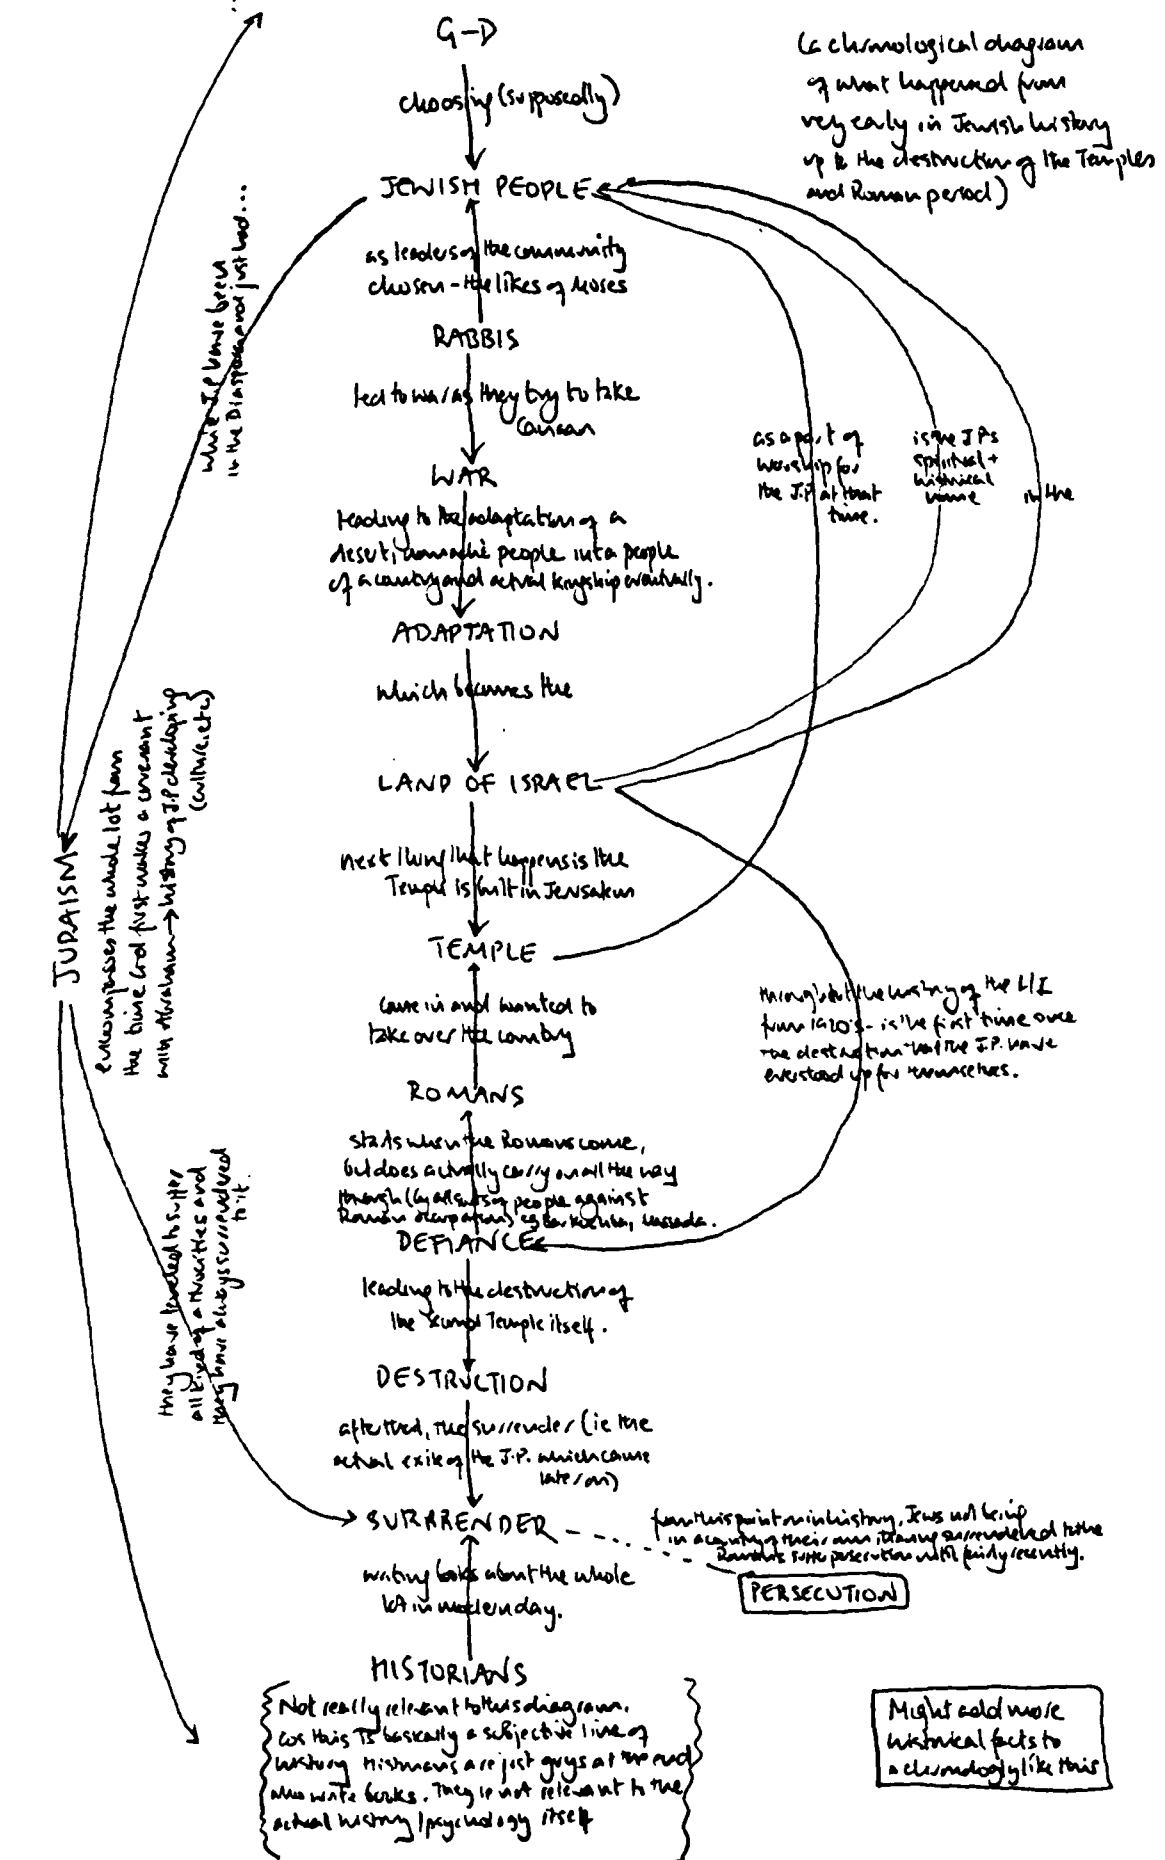 G-D
(a chronological diagram
of what happened from
very early in Jewish history
up to the destruction of the Temples
and Roman period)
choosing (supposedly)
JEWISH PEOPLE
as leaders of the community
chosen - the likes of Moses
RABBIS
led to war as they try to take
Canaan
WAR
leading to the adaptation of a
desert, nomadic people into a people
of a country and actual kingship eventually.
ADAPTATION
which becomes the
LAND OF ISRAEL
next thing that happens is the
Temple is built in Jerusalem
TEMPLE
came in and wanted to
take over the country
ROMANS
starts when the Romans come,
but does actually carry on all the way
through (by all sorts of people against
Roman occupation) eg Bar Kochba, Massada.
DEFIANCE
leading to the destruction of
the Second Temple itself.
DESTRUCTION
after that, the surrender (ie the
actual exile of the J.P. which came
later on)
SURRENDER
writing books about the whole
lot in modern day.
HISTORIANS
Not really relevant to this diagram.
cos this IS basically a subjective line of
history. Historians are just guys at the end
who write books. They're not relevant to the
actual history/psychology itself
as a part of
worship for
the J.P. at that
time.
is the J.P.s
spiritual +
historical
home
in the
throughout the history of the L/I
from 1920's - is the first time over
the destruction that the J.P. have
ever stood up for themselves.
from this point on in history, Jews not being
in a country of their own, having surrendered to the
Romans suffer persecution until fairly recently.
PERSECUTION
Might add more
historical facts to
a chronology like this
JUDAISM
which J.P. have been
in the Diaspora and just had...
encompasses the whole lot from
the time God first makes a covenant
with Abraham → history of J.P. developing
(culture, etc)
they have tended to suffer
all kind of atrocities and
they have always surrendered
to it.